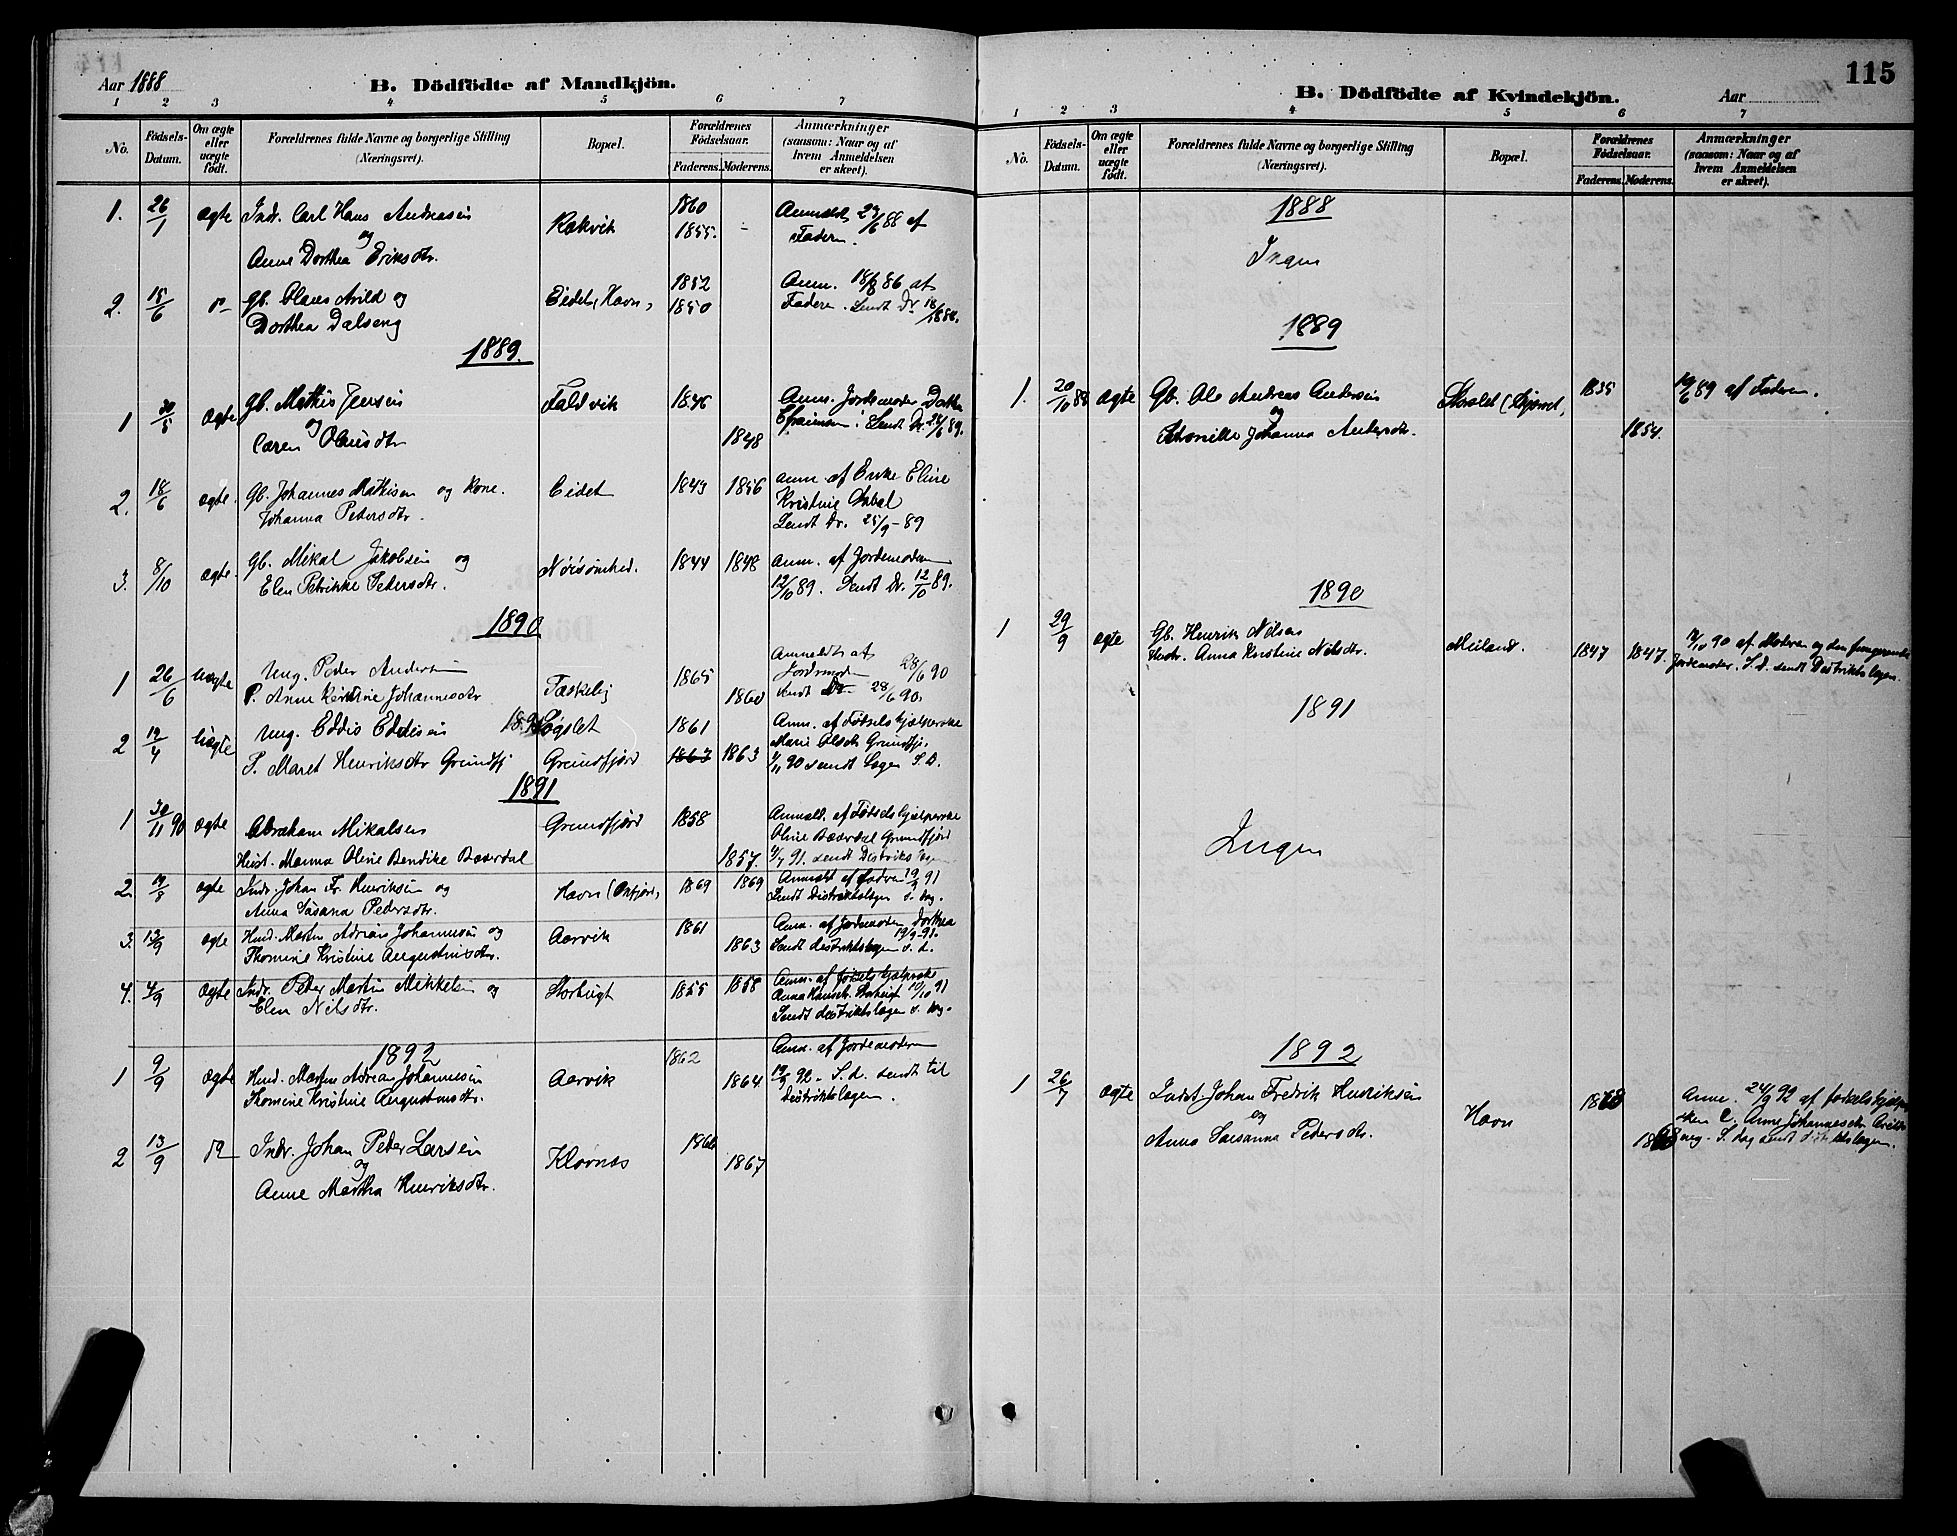 Aar 1888
B. Dödfödte af Mandkjön.
1 2 3 4 5 6 7
No.
Födsels-Datum.
Om ægte eller uægte födt.
Forældrenes fulde Navne og borgerlige Stilling (Næringsvei).
Bopæl.
Forældrenes Födselsaar.
Faderens. Moderens.
Anmærkninger (saasom: Naar og af hvem Anmeldelsen er skeet).
1. 26/1 ægte Indr. Carl Hans Andreasen Rakvik 1860 Anmeldt 24/6 88 af
og 1855. Faderen.
Anne Dorthea Eriksdtr.
2. 15/6 Gb. Claus Arild og Eidet, Havn, 1852 Anm. 18/8 86 af
Dorthea Dalseng 1850 Faderen. Sendt Dr. 18/1888.
1889.
1 30/5 Ægte Gb. Mathis Jensen Faldvik 1846 Anm. Jordemoder
og 1848 Sendt Dr. 24/6 89.
Caren Olausdtr
2. 18/6 ægte. Gb. Johannes Mathisen og Kone. Eidet 1843 1856 Anm. af Enke Eline
Johanna Pedersdtr. Kristine
Sendt Dr. 25/9-89
3. 8/10 ægte. Gb. Mikal Jakobsen og 1844 1848 Anm. af Jordemoderen
Elen Petrikke Pedersdtr. 12/10 89. Sendt Dr. 12/10 89.
1890
1 26/6 Uægte Ung. Peder Andersen 1865 Anmeldt af
P. Anne Kerstine Johannesdtr 1860 Jordemod 28/6 90
Sendt Dr. 28/6 90.
2 19/4 Uægte Ung. Eddis Eddisen Løgslet 1861 Anm. af Fødselshjælperske
P. Maret Henriksdtr Grundfj Grundfjord 1863 1863 Marie Olsdtr Grundfj.
1/11 90 sendt Lægen S.D.
1891
1 30/11 90 ægte Abraham Mikalsen Grundfjord 1858 Anmeld. af Fødselshjælperske
Hust. Marina Oline Bendike Baardal 1857. Oline Baardal Grundfjord
4/7 91. sendt Distrikslægen
2. 19/8 ægte Indr. Johan Fr. Henriksen og Havn 1869 1869 Anmeldt af Fadren 19/9 91
Anna Susana Pedersdtr. Sendt Distriktslægen s. dag.
3. 13/9 ægte Husd. Martin Adrian Johannesen og Aarvik 1861 Anm. af Jordemoderen Dorthea
Thomine Kristine Augustinusdtr. 1863 19/9-91. Sendt distriktslægen s. d.
4. 4/9 Ægte Indr. Peder Martin Mikkelsen og Storbugt 1855 1858 Anm. af fødselshjælperske
Elen Nilsdtr. Anna Hansdtr. Storbugt 10/10 91
Sendt distriktslægen s. dag.
1892
1 9/9 ægte Husd. Martin Adrian Johannesen Aarvik 1862 Anm. af Jordemoderen
Thomine Kristine Augustinusdtr. 1864 19/9 92. S. d. sendt til
Distriktslægen.
2 13/9 Indr. Johan Peder Larsen Klovnes 1866
og 1867
Anne Martha Henriksdtr.
115
B. Dödfödte af Kvindekjön.
Aar
1 2 3 4 5 6 7
No.
Födsels-Datum.
Om ægte eller uægte födt.
Forældrenes fulde Navne og borgerlige Stilling (Næringsvei).
Bopæl.
Forældrenes Födselsaar.
Faderens. Moderens.
Anmærkninger (saasom: Naar og af hvem Anmeldelsen er skeet).
1888
Ingen
1889
1. 20/10 88 ægte Gb. Ole Andreas Andersen Storslet 1835 19/6 89 af Faderen.
og 1854.
Johanna Andersdtr.
1890
1 29/9 ægte Gb. Henrik Nilsen Meiland. 1847 1847. af Moderen og den fungerende
Hustr. Anna Kristine Nilsdtr. Jordemoder. S. d. sendt Distriktslægen.
1891
Ingen
1892
1 26/7 ægte Indst. Johan Fredrik Henriksen Havn 1868 Anm. 24/9 92 af fødselshjælper
og 1868 sken Anne Johannesdtr
Anna Susanna Pedersdtr. S. dag sendt distriktslægen.